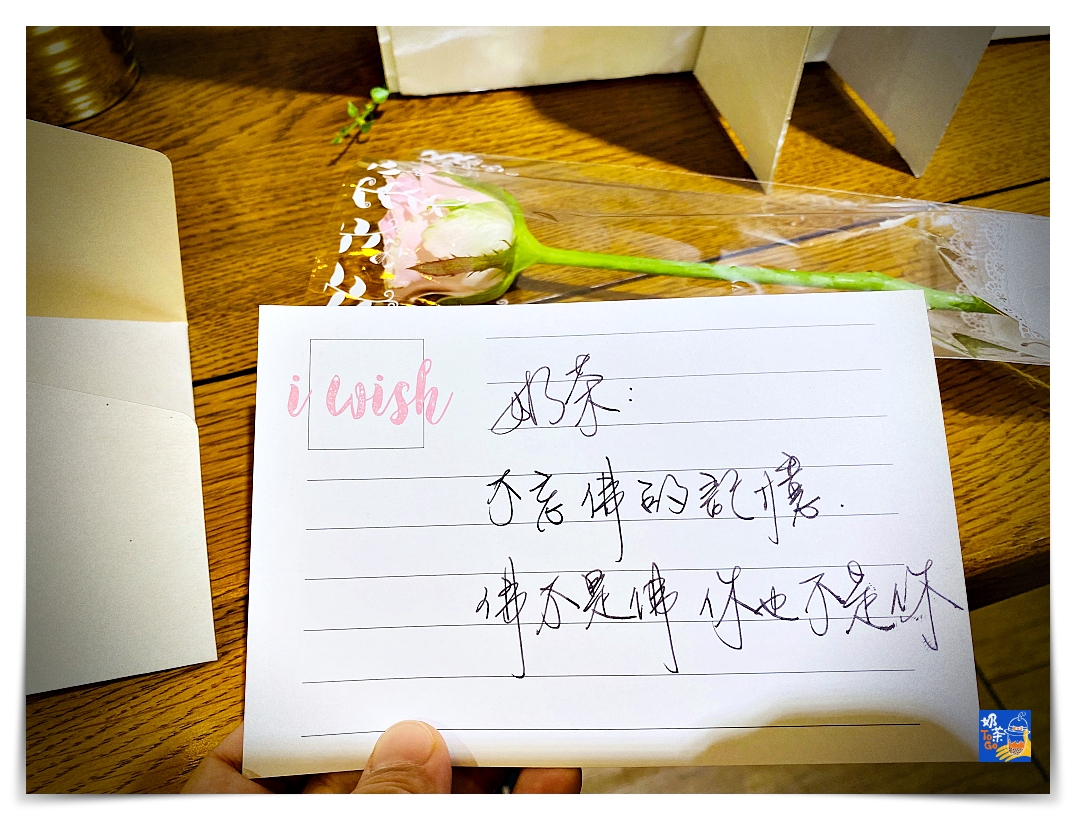 i wish
奶茶：
不忘佛的記憶.
佛不是佛 你也不是你
奶茶
To
Go